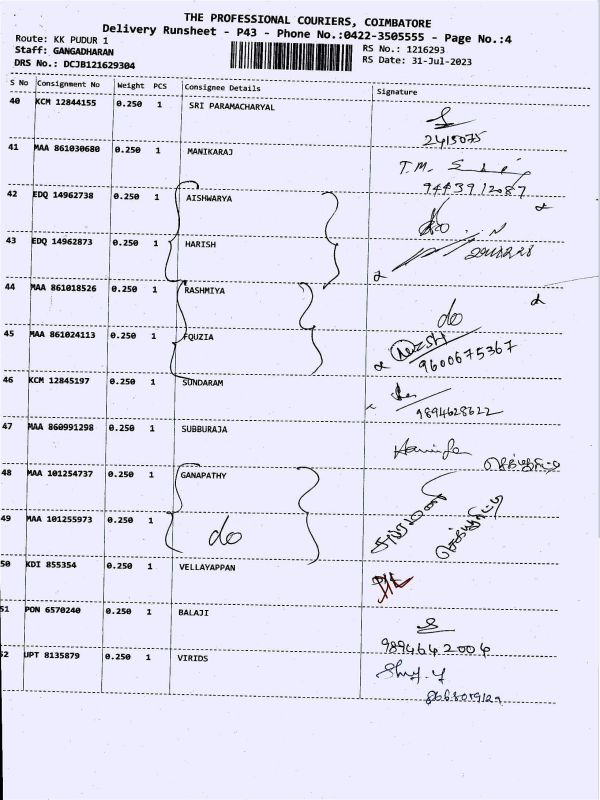 THE PROFESSIONAL COURIERS, COIMBATORE
Delivery Runsheet - P43 - Phone No.:0422-3505555 - Page No.:4
Route: KK PUDUR 1
Staff: GANGADHARAN
DRS No.: DCJB121629304
RS No.: 1216293
RS Date: 31-Jul-2023
S No Consignment No Weight PCS Consignee Details Signature
40 KCM 12844155 0.250 1 SRI PARAMACHARYAL
2415075
41 MAA 861030680 0.250 1 MANIKARAJ
T.M.
9443912087
42 EDQ 14962738 0.250 1 AISHWARYA
do
43 EDQ 14962873 0.250 1 HARISH
44 MAA 861018526 0.250 1 RASHMIYA
do
45 MAA 861024113 0.250 1 FOUZIA
9600675367
46 KCM 12845197 0.250 1 SUNDARAM
9894628622
47 MAA 860991298 0.250 1 SUBBURAJA
48 MAA 101254737 0.250 1 GANAPATHY
49 MAA 101255973 0.250 1 do
50 KDI 855354 0.250 1 VELLAYAPPAN
51 PON 6570240 0.250 1 BALAJI
9894642004
52 UPT 8135879 0.250 1 VIRIDS